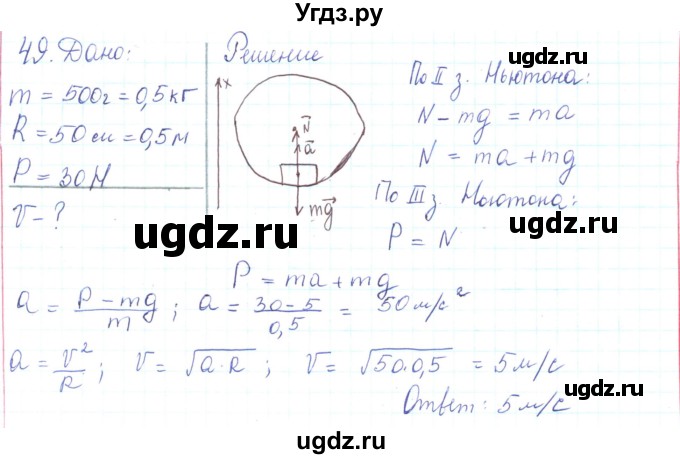 Угдз.ру
49. Дано:
m = 500г = 0,5 кг
R = 50 см = 0,5 м
P = 30 Н
V - ?
Решение
x
N
a
mg
По II з. Ньютона:
N - mg = ma
N = ma + mg
По III з. Ньютона:
P = N
P = ma + mg
a = (P - mg)/m ; a = (30 - 5)/0,5 = 50 м/с²
a = V²/R ; V = √(a·R) ; V = √(50·0,5) = 5 м/с
Ответ: 5 м/с
ugdz.ru
ugdz.ru
ugdz.ru
ugdz.ru
ugdz.ru
ugdz.ru
ugdz.ru
ugdz.ru